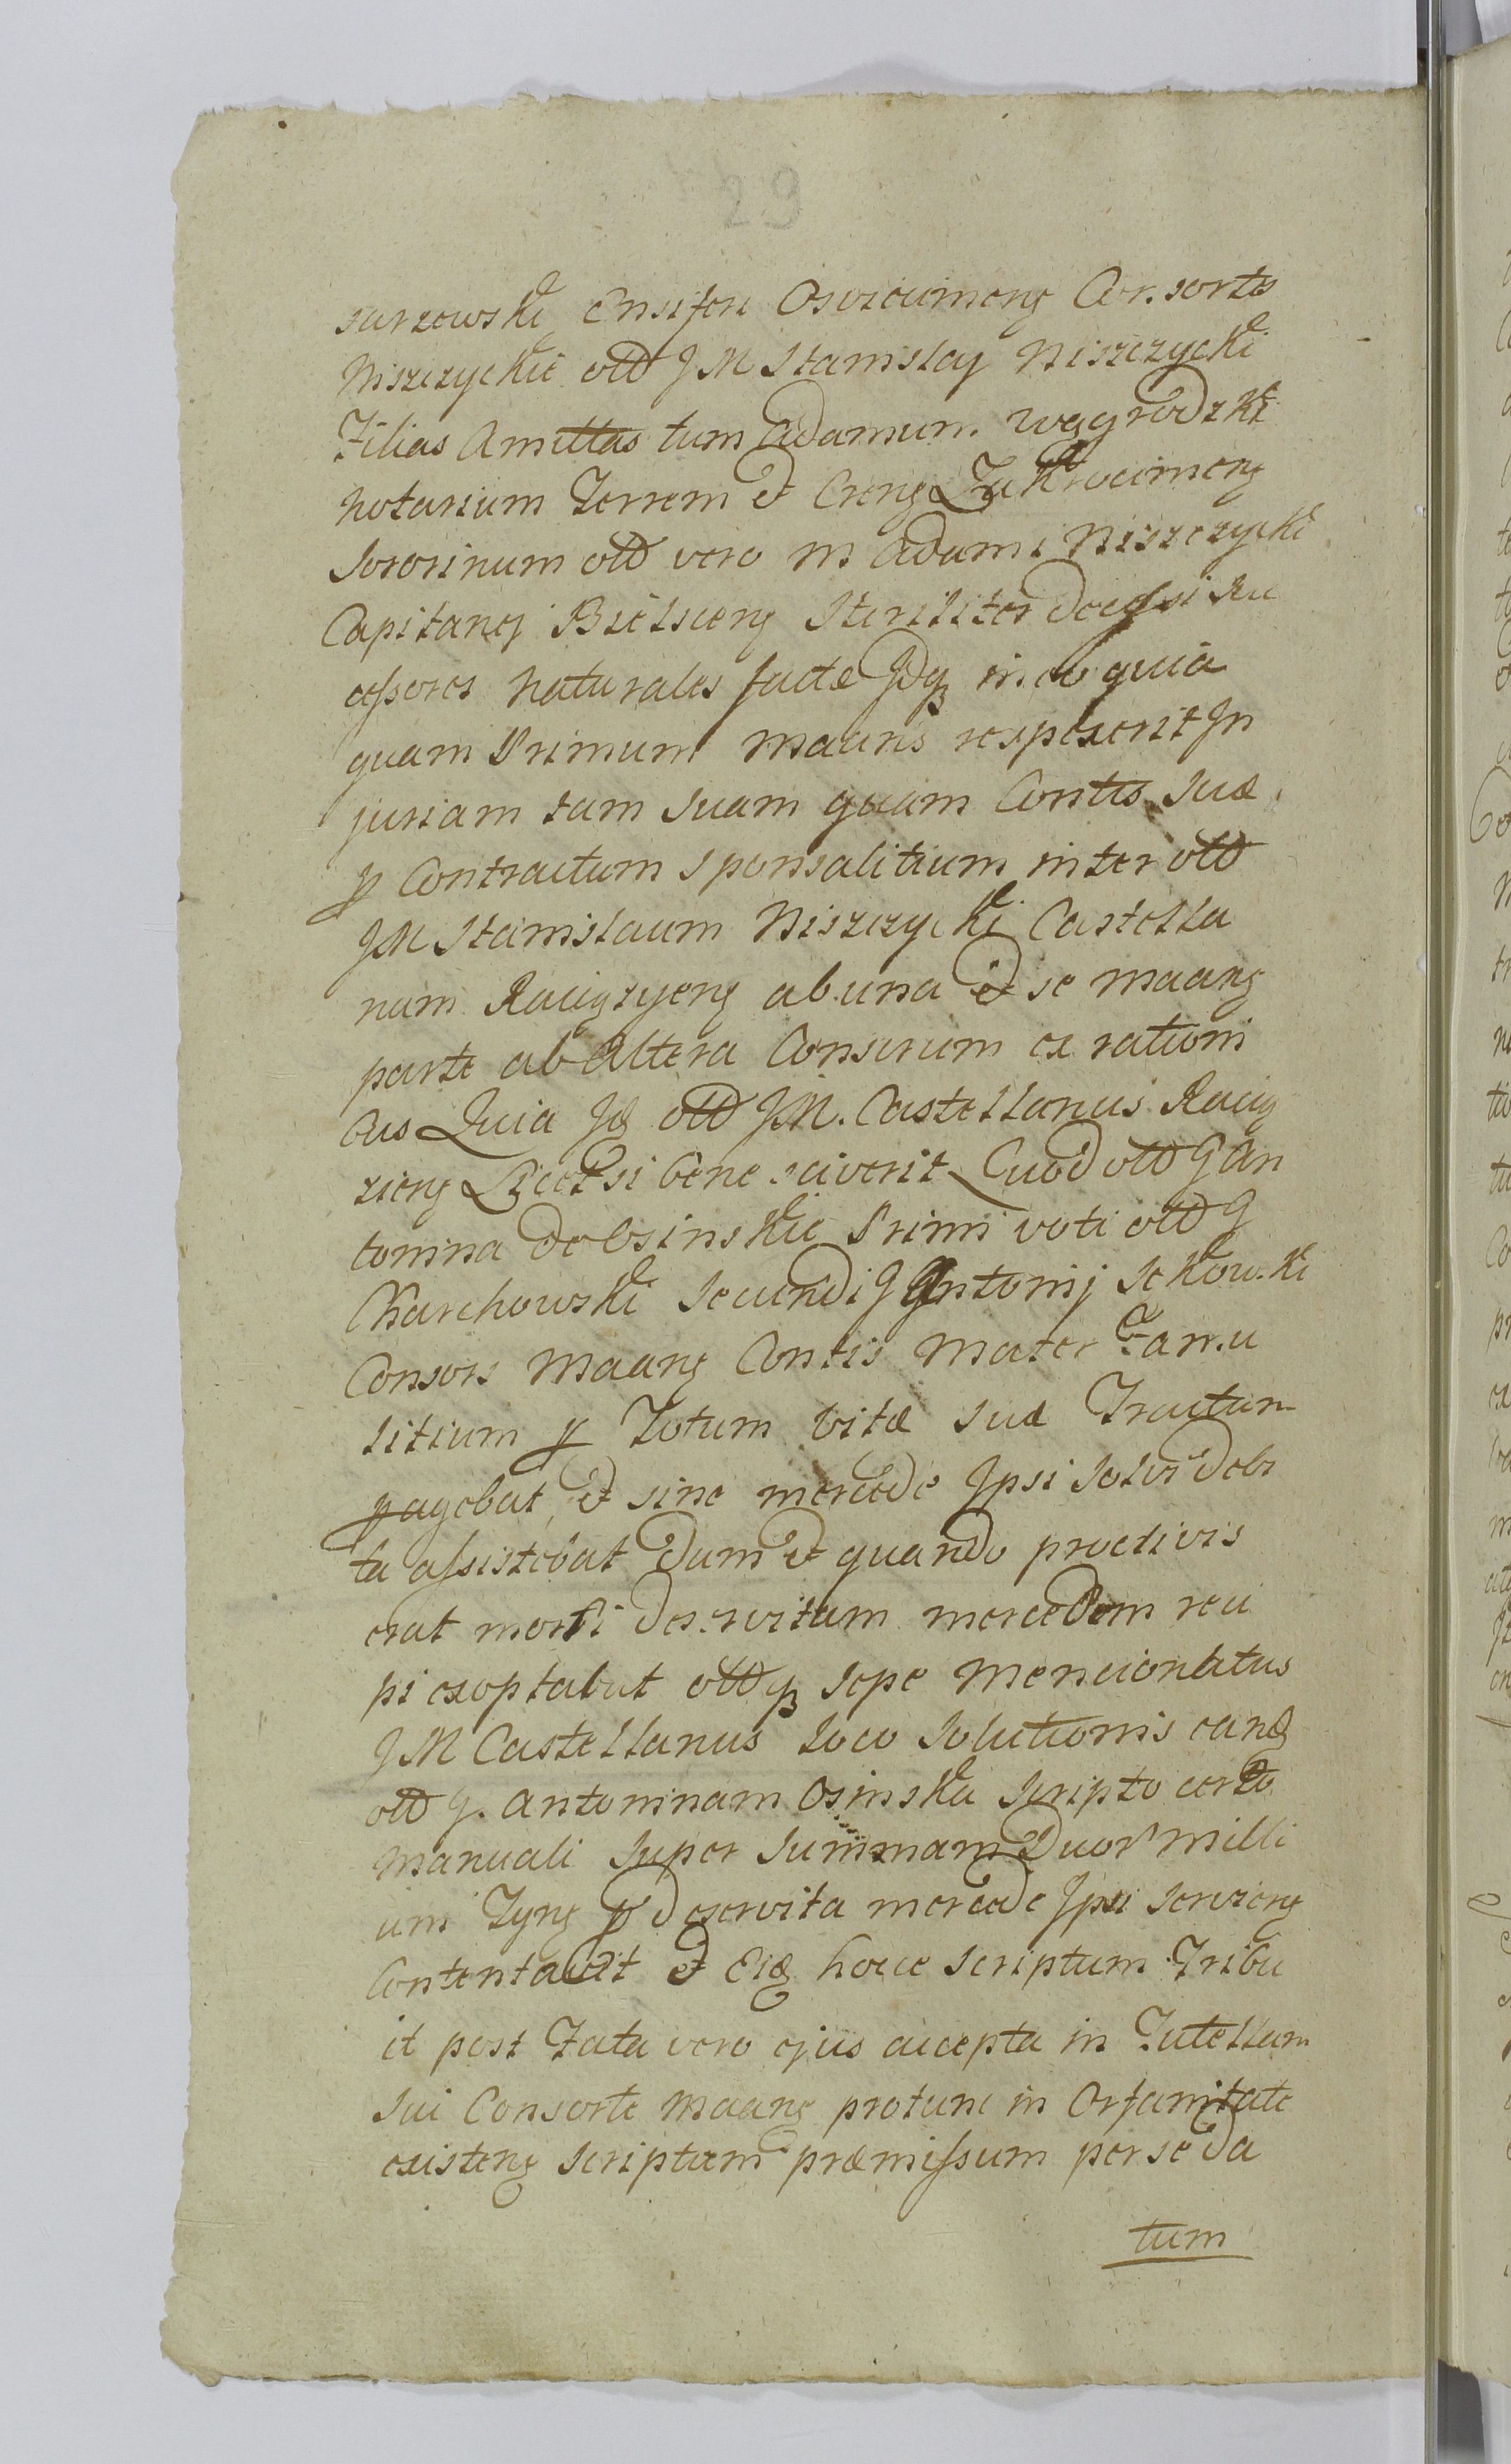 29
surzewski Ensiferi Osviecimeng Consortes
Niszczyckie olld JM Stanislaj Niszczycki
Filias Amittas tum Adamum Wągrodzki
Notarium Terrem et Creng Zakroczimeng
Sororinum olld vero M Adami Niszczycki
Capitanej Bielsceng steriliter decessi Su
cessores naturales factæ Jdq in eo quia
quam Primum Maans respexerit Jn
juriam tam suam quam Contis suæ
p Contractum sponsalitium inter olld
JM Stanislaum Niszczycki Castella
num Raciązyeng ab una et se Maang
parte ab Altera Conscrium ex rationi
bus Quia Jd olld JM. Castellanus Racią
zieng Licet si bene sciverit Quod olld G An
tonina Dobsinskie Primi voti olld G
Charchowski Secundi G Antonij Sekowski
Consors Maang Contis Mater Famu
litium p Totum vitæ suæ Tractum
pagebat, et sine mercede Jpsi Solvi debi
ta assistebat dum et quando proclivis
erat morti deservitam mercedem reci
pi exoptabat olldq sepe mencionatus
JM Castellanus loco solutionis eand
olld G. Antoninam Osinska scripto certo
manuali super summam Duor Milli
um Tyng p deservita mercede Jpsi servieng
Contentavit et Eid hocce scriptum Tribu
it post Fata vero ejus accepta in Tutellam
sui Consorte Maang protunc in Orfanitate
existeng scriptum præmissum per se da
tum